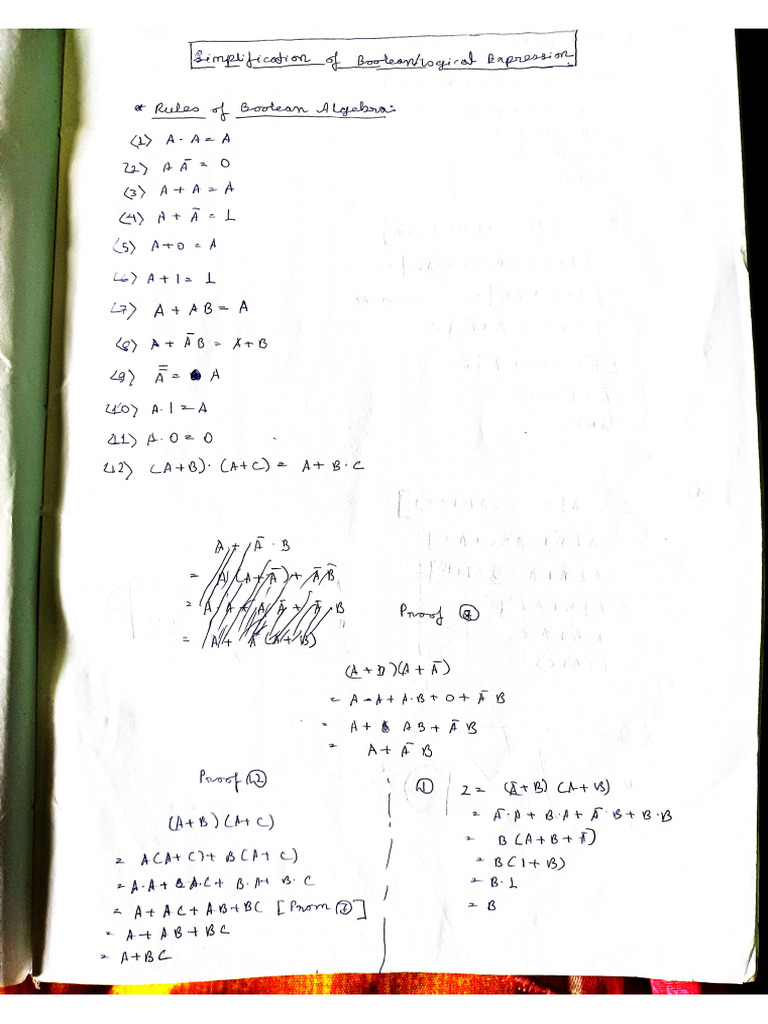 Simplification of Boolean/Logical Expression
* Rules of Boolean Algebra:-
(1) A·A = A
(2) A Ā = 0
(3) A + A = A
(4) A + Ā = 1
(5) A+0 = A
(6) A+1 = 1
(7) A + AB = A
(8) A + ĀB = A+B
(9) A̿ = A
(10) A·1 = A
(11) A·0 = 0
(12) (A+B)·(A+C) = A+B·C
A + Ā·B
= A (A+Ā) + ĀB̄
= A·A + A Ā + Ā B
= A + Ā (A+B)
Proof (8)
(A+B)(A+Ā)
= A·A + A·B + 0 + Ā B
= A + AB + Ā B
= A + Ā B
Proof (12)
(A+B)(A+C)
= A(A+C) + B(A+C)
= A·A + A·C + B·A + B·C
= A + AC + AB + BC [From (7)]
= A + AB + BC
= A+BC
(1) Z = (Ā+B) (A+B)
= Ā·A + B·A + Ā·B + B·B
= B (A+B+Ā)
= B(1+B)
= B·1
= B